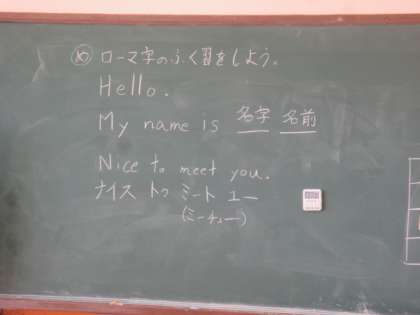 め ローマ字のふく習をしよう。
Hello.
My name is 名字 名前
Nice to meet you.
ナイス トゥ ミート ユー
(ミーチュー)